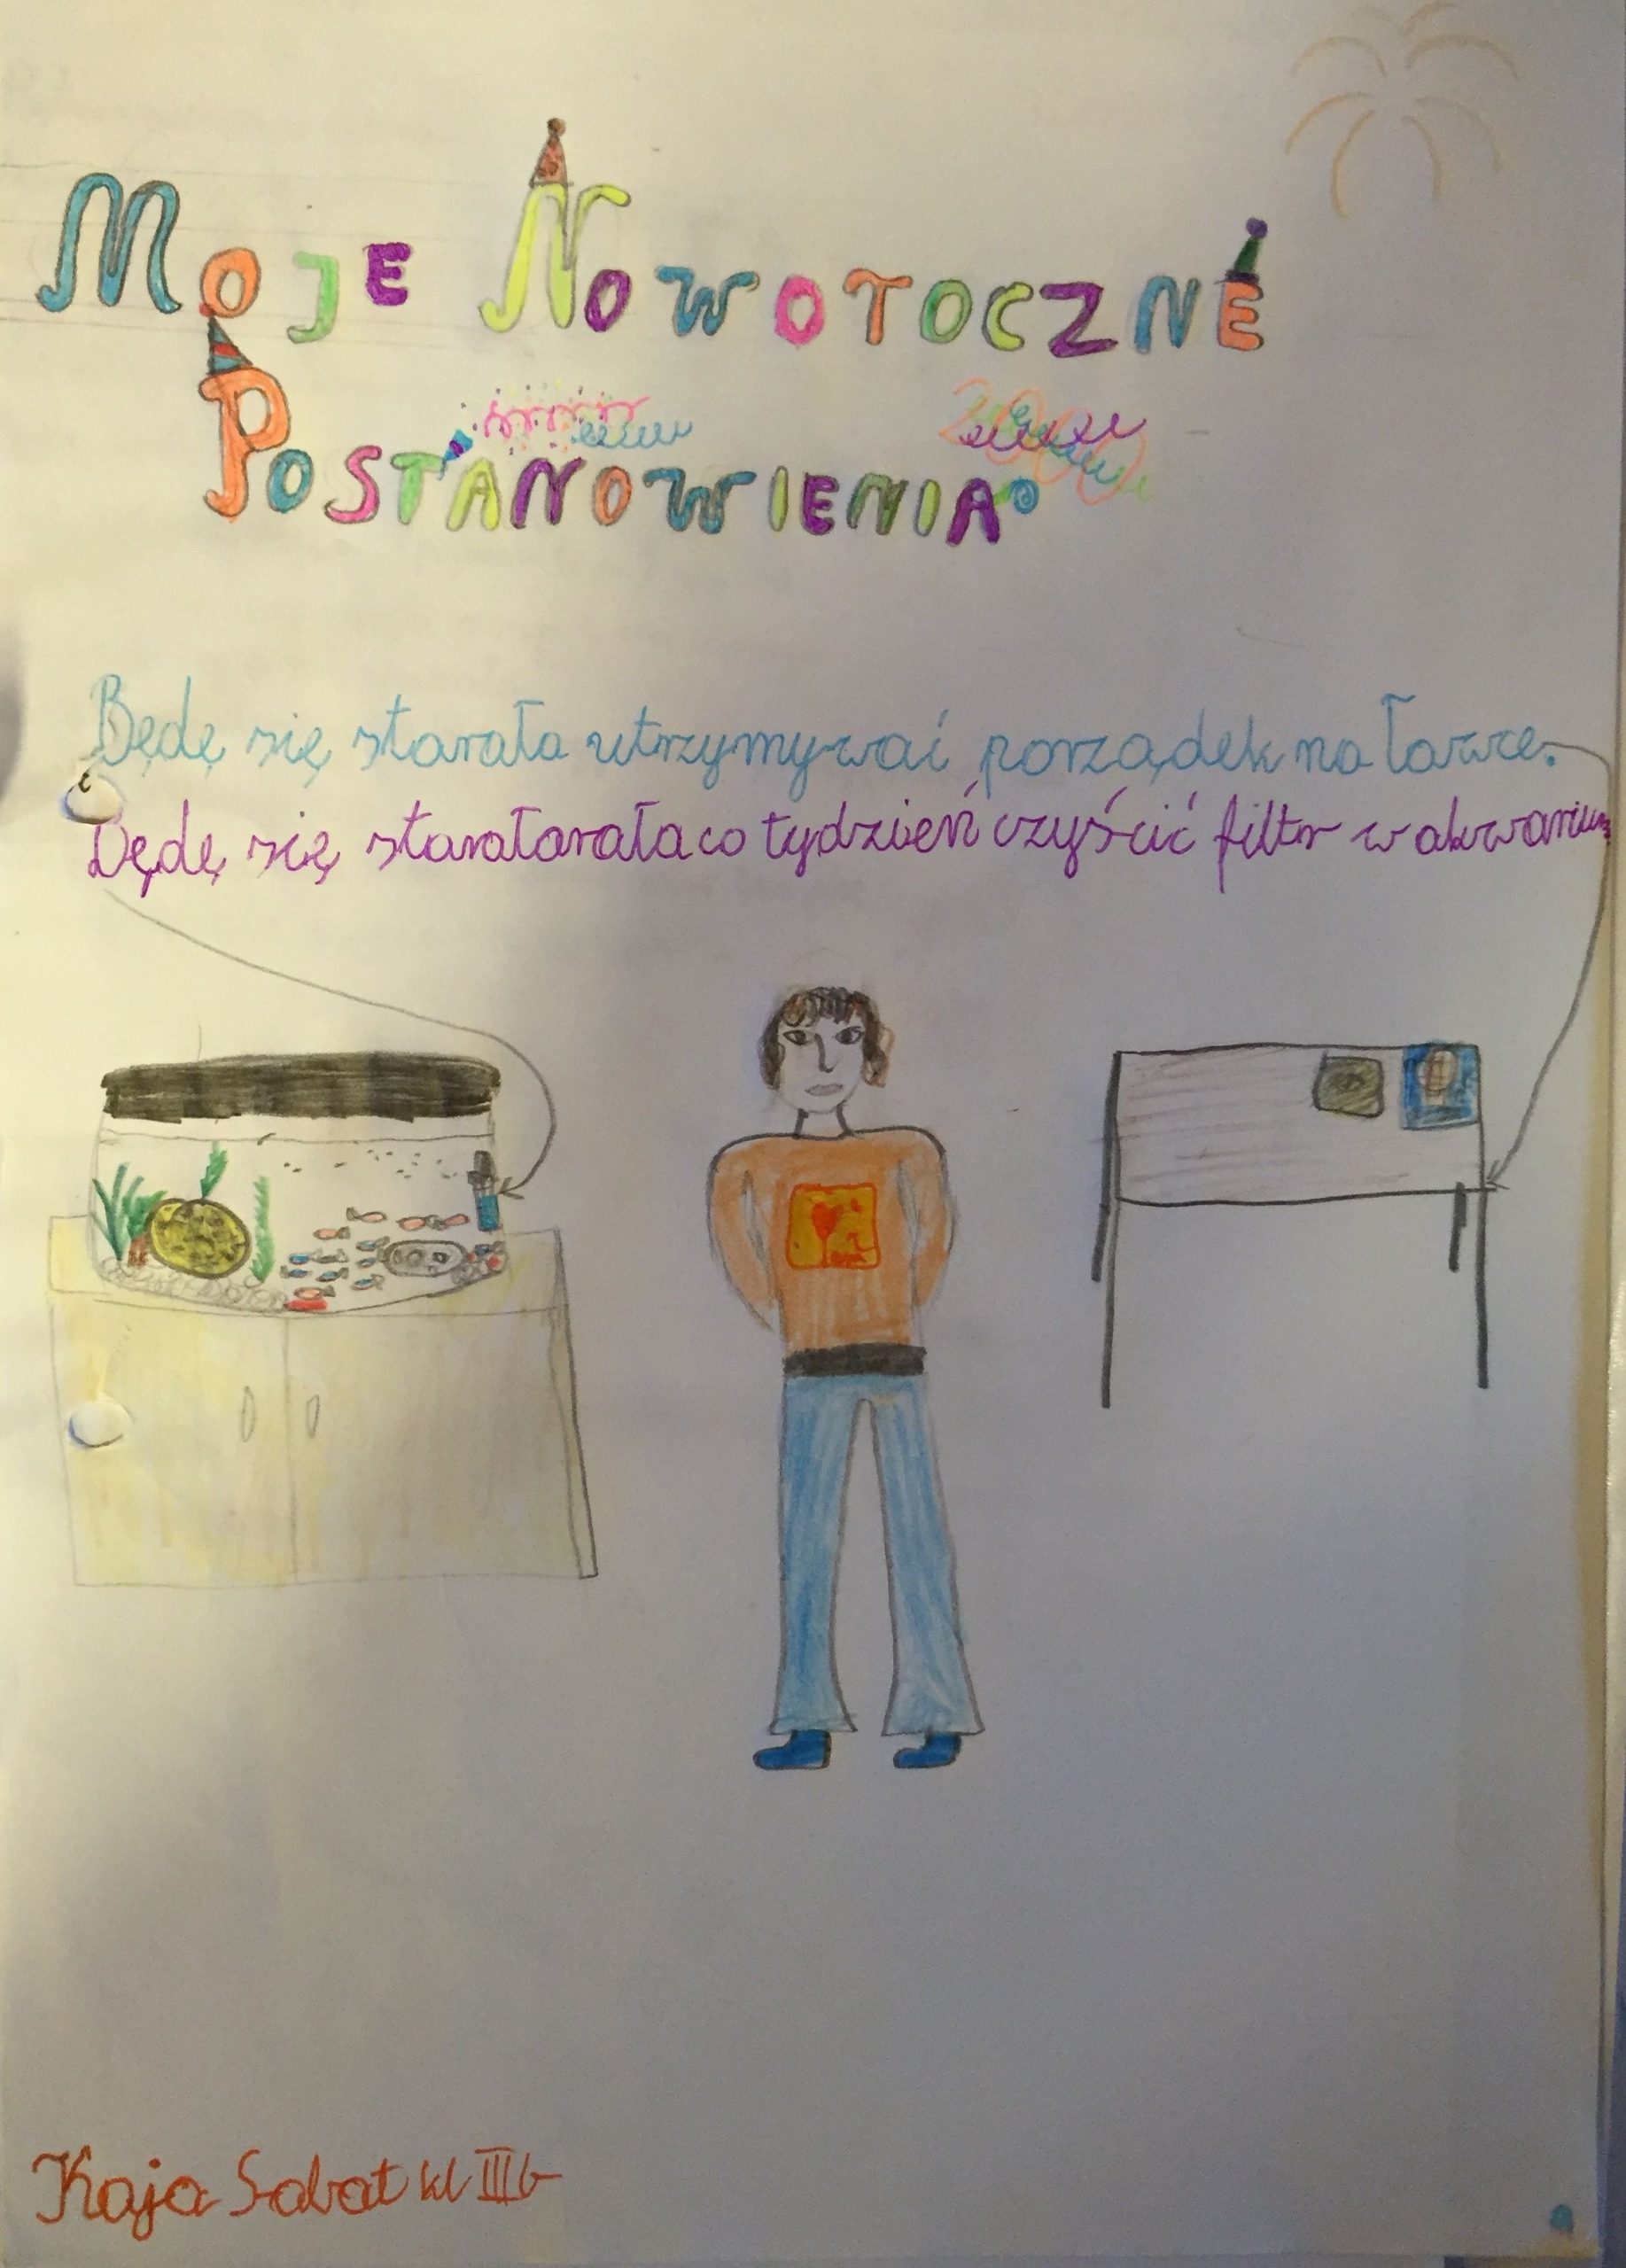 MOJE NOWOTOCZNE
POSTANOWIENIA
Będę się starała utrzymywać porządek na ławce.
Będę się staratarała co tydzień czyścić filtr w akwarium
Kaja Sabat kl III b